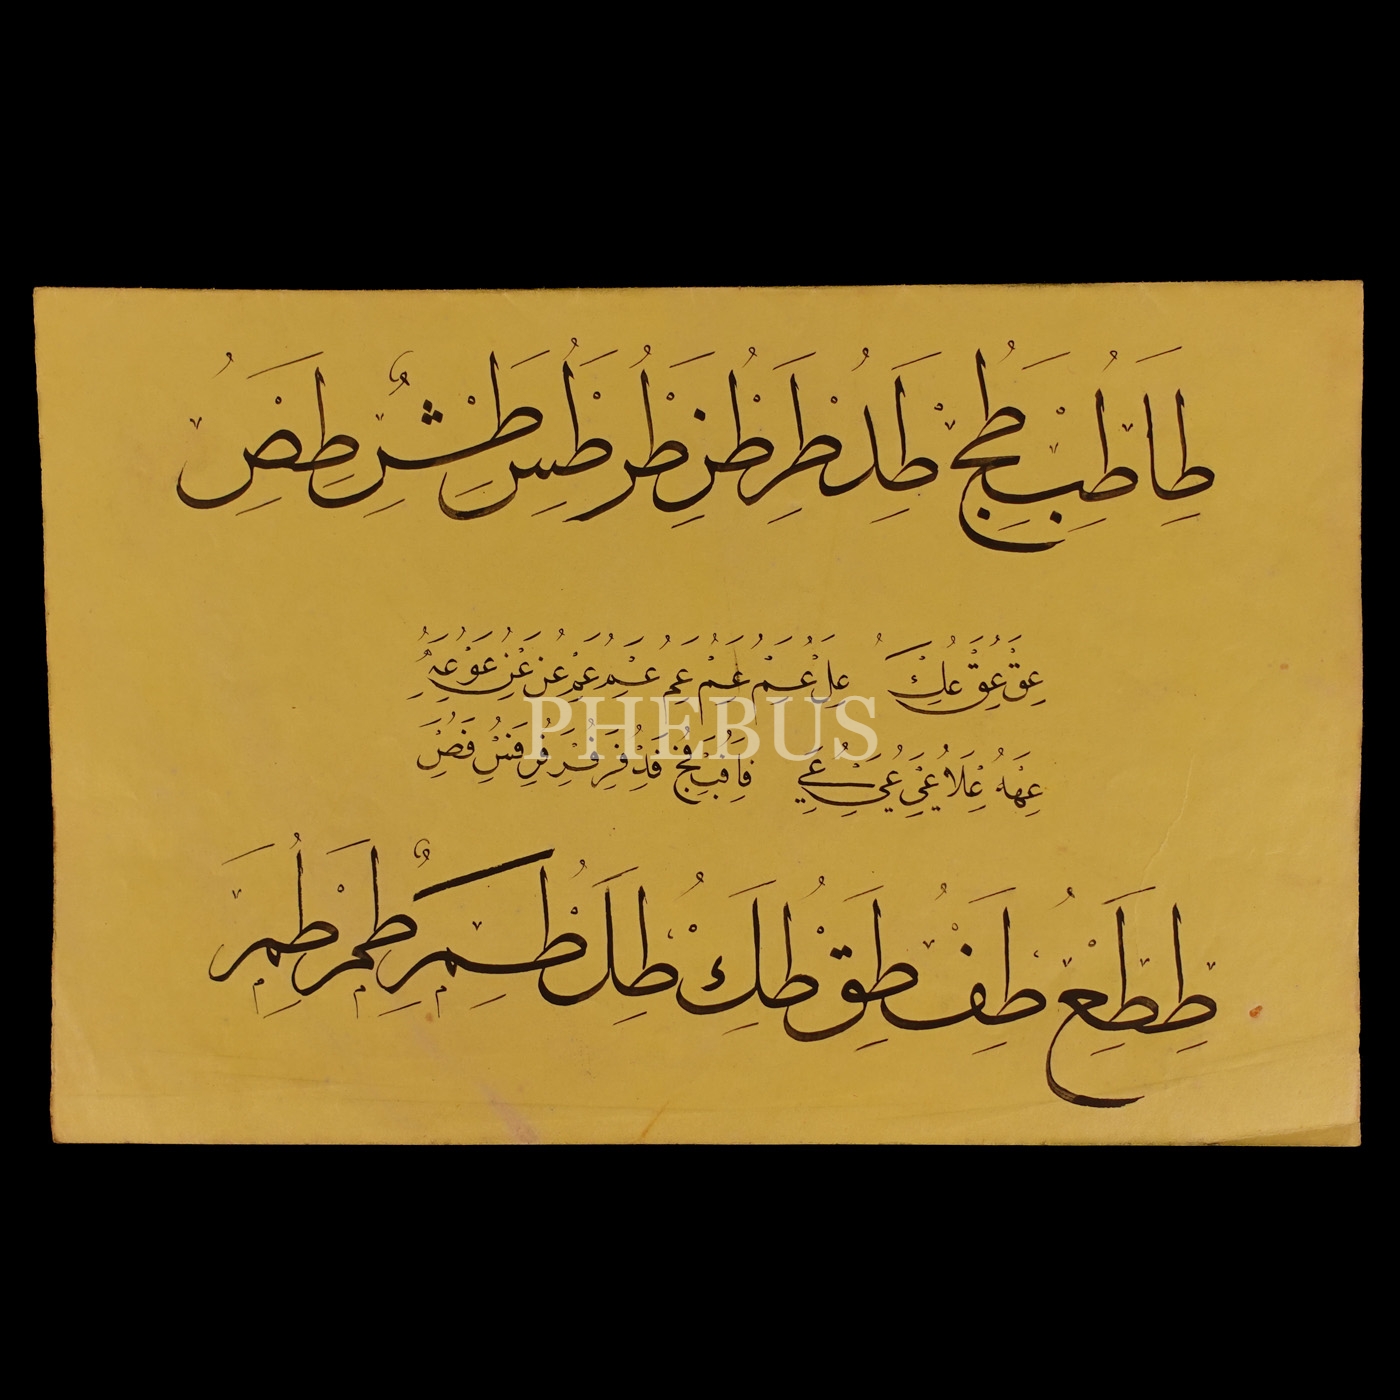 طا طب طج طد طر طز طر طس طش طص
عق عق عك عل عم عم عم عم عم عن عن عو عه
PHEBUS
عها علا عى عى عى فا فب فج فد فر فر فر فس فص
طط طع طف طق طك طل طم طم طم